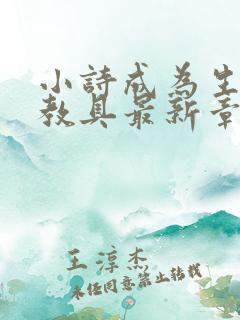 小詩成為生
教具最新章
王淳杰
未经同意禁止转载